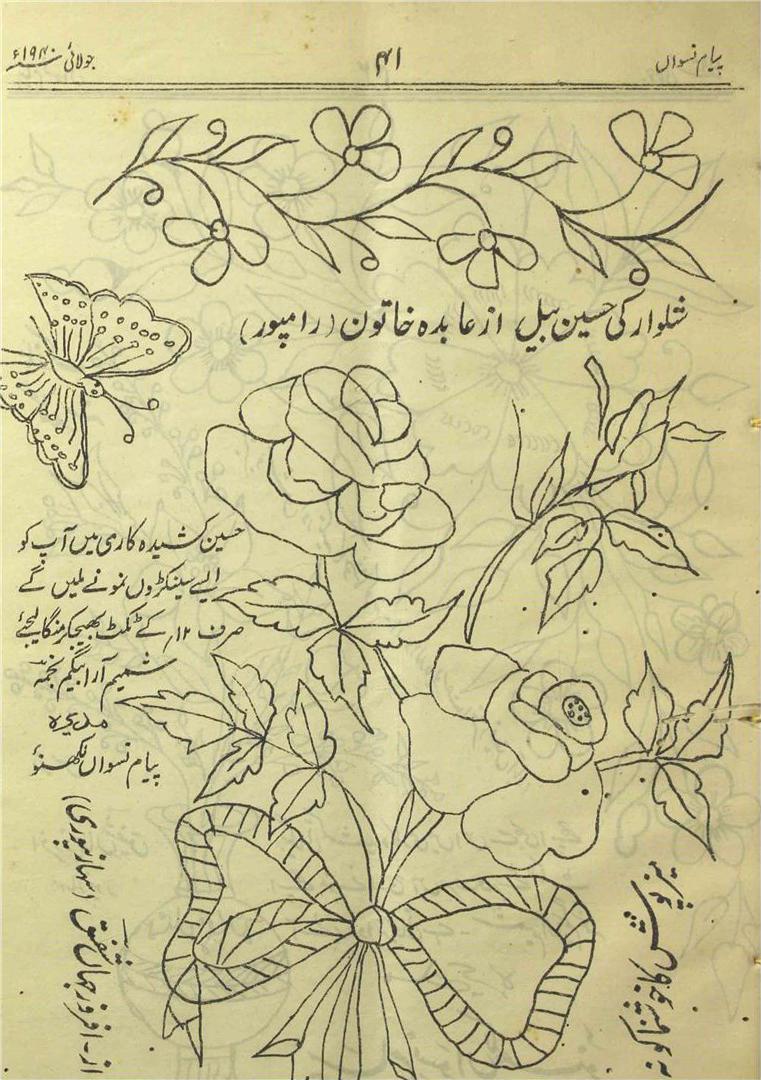 پیام نسواں
۴۱
جولائی ۱۹۴۰ء
شلوار کی حسین بیل از عابدہ خاتون (رامپور)
حسین کشیدہ کاری میں آپ کو
ایسے سینکڑوں نمونے ملیں گے
صرف ۱۲؍ کے ٹکٹ بھیجکر منگا لیجئے
شمیم آرا بیگم نجمہ
مدیرہ
پیام نسواں لکھنؤ
میزپوش کا خوشنما کونہ
از۔ افروز جہاں شفق (سہارنپوری)